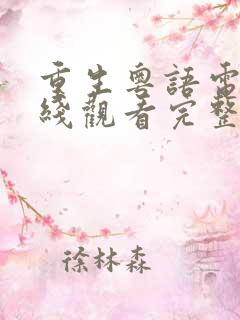 重生粤語電
綫觀看完整
徐林森